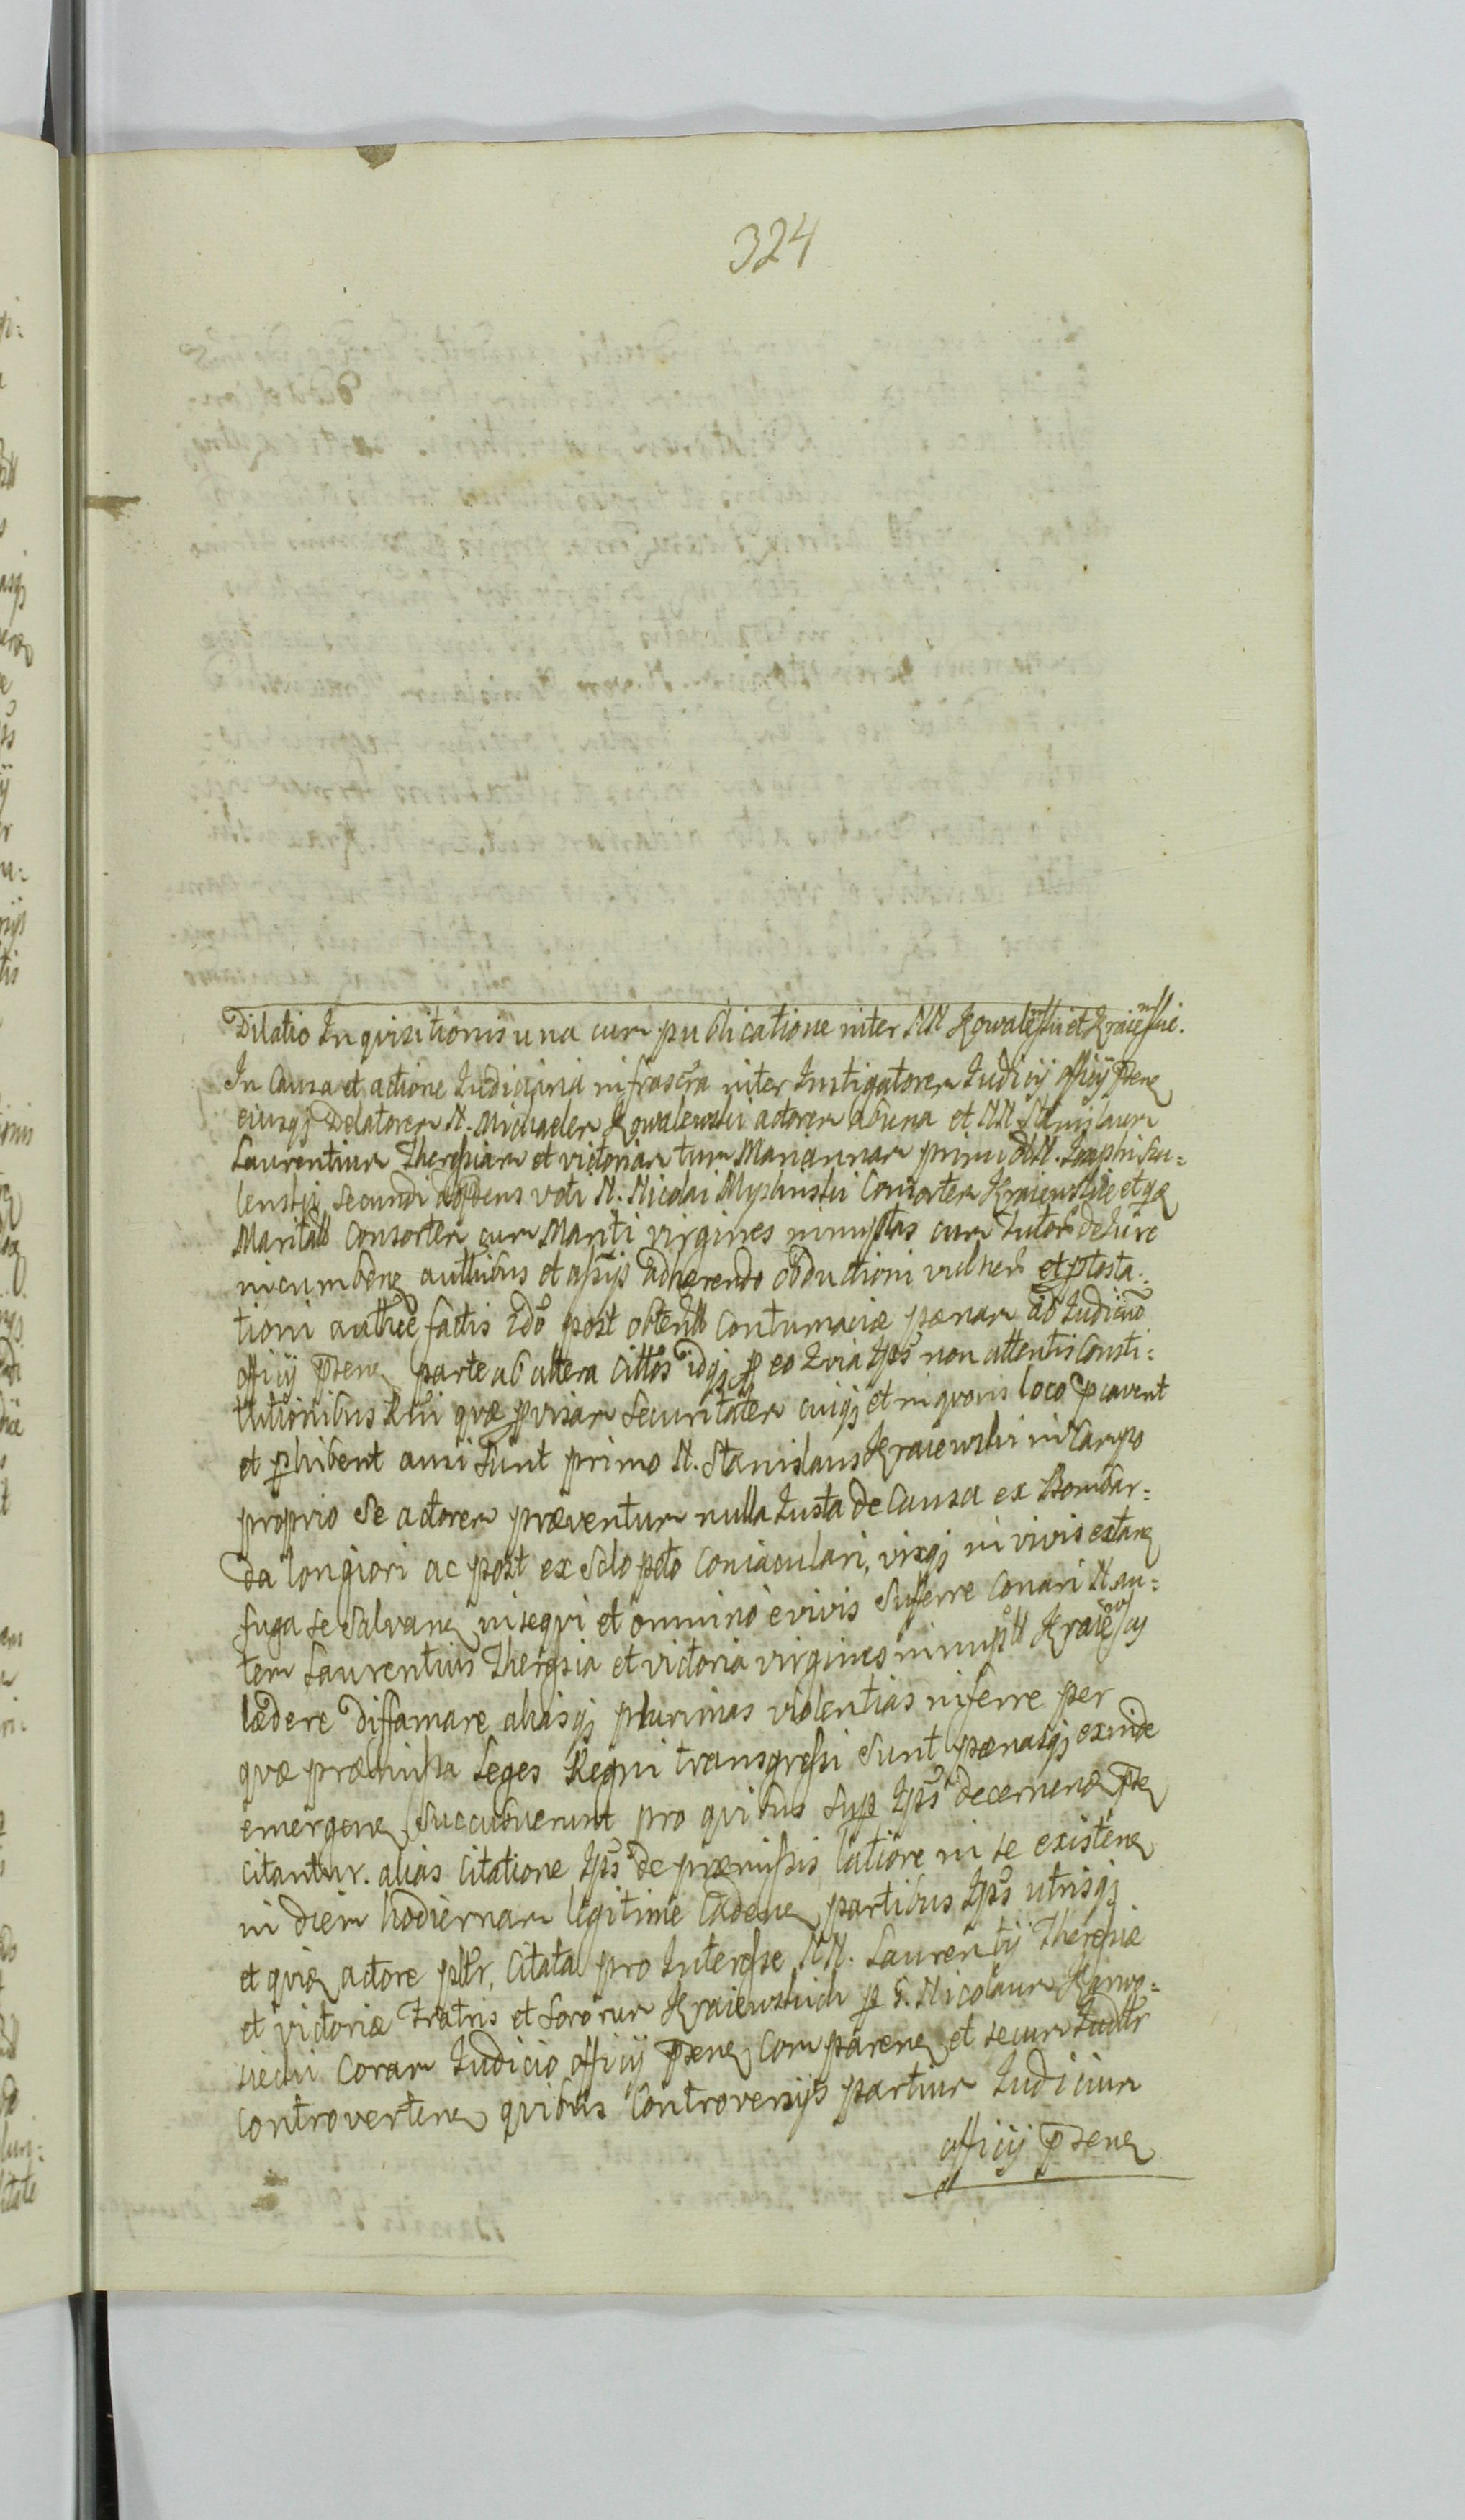 324
Dilatio Inquisitionis una cum publicatione inter NN Kowalewski et Kraiewskie.
In Causa et actione Judiciaria infrascra inter Instigatorem Judicij officij pñsen
eiusq Delatorem N. Michaelem Kowalewski actorem ab una et NN. Stanislaum
Laurentium Theresiam et victoriam tum Mariannam primi N. Josephi
secundi voti N. Nicolai Myslinski Consortem Kraiewskie et
Consortem cum Mariti virgines innuptas cum de Jure
incumben authbus et adhærendo obductioni vulner et ptesta:
tioni factis Ido post obtent Contumaciæ pænam ab Judicio
officij pñsen parte ab altera Cittos idq p eo quia Ips non attentis Consti:
tutionibus Rni quæ pvisam Securitatem cuiq et in quovis loco pcavent
et phibent ausi sunt primo N. Stanislaus Kraiewski in Campo
proprio se actorem præventum nulla Justa de Causa ex Bombar:
da longiori ac post ex Sclopeto Coniaculari, vixq in vivis extan
fuga se Salvan insequi et omnino e vivis Sufferre Conari N. au:
tem Laurentius Theresia et victoria virgines innupt
lædere diffamare aliasq plurimas violentias inferre per
quæ præmissa Leges Regni transgressi sunt pænasq exinde
emergen Succubuerunt pro quibus Sup Ips decernen pñse
citantur. alias Citatione Ips de præmissis latiore in se existen
in diem hodiernam legitime Caden partibus Ips utrisq
et quidem actore pltr, Citata pro Interesse NN. Laurentij Theresiæ
et victoriæ Fratris et Sororum Kraiewskich p G. Nicolaum
Coram Judicio officij pñsen Comparen et secum Judltr
Controverten quibus Controversijs partium Judicium
officij pñsen